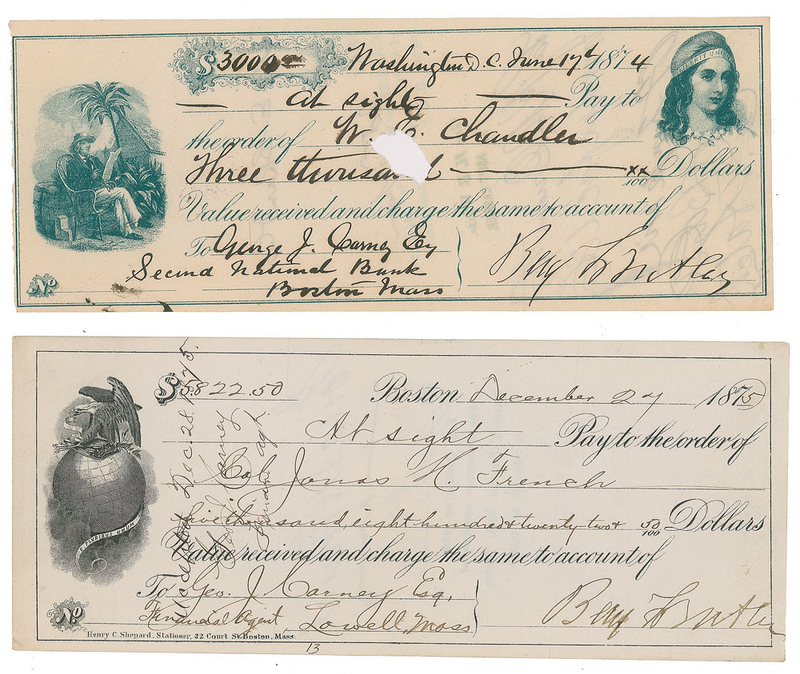 $3000 Washington D.C. June 17th 1874
LIBERTY UNION
At sight Pay to
the order of W. E. Chandler
Three thousand xx/100 Dollars
Value received and charge the same to account of
To George J. Carney Esq
Second National Bank
Boston Mass
Benj F Butler
No
$5822.50 Boston December 27 1875
At sight Pay to the order of
Col Jonas H. French
Five thousand, eight hundred & twenty-two & 50/100 Dollars
Value received and charge the same to account of
E PLURIBUS UNUM
To Geo. J. Carney Esq.
Financial Agent Lowell, Mass
Benj F Butler
No
Henry C. Shepard, Stationer, 22 Court St. Boston, Mass.
13
Accepted Dec 28 / 75.
Geo. J. Carney
Financ. agt.